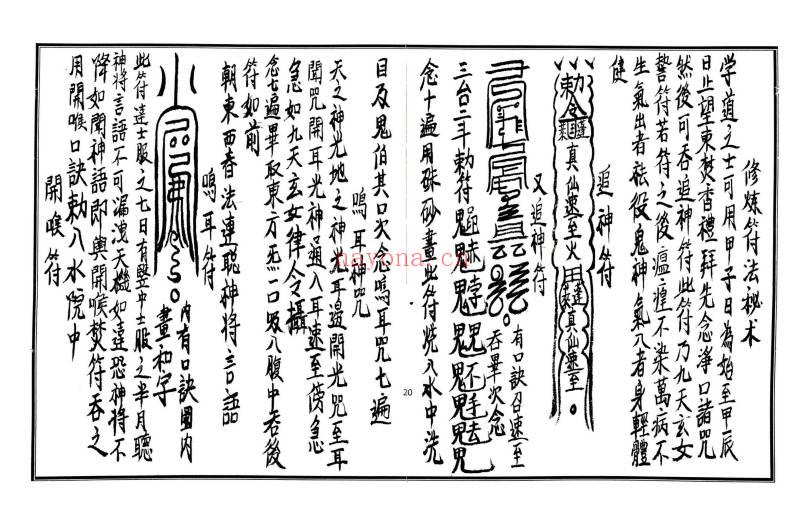 修煉符法秘术
学道之士可用甲子日為始至甲辰
日止望東焚香禮拜先念淨口諸咒
然後可吞追神符此符乃九天玄女
誓符若符之後瘟瘟不染萬病不
生氣出者祛役鬼神氣入者身輕體
健
追神符
勅令
真仙速至火
真仙速至
又追神符
有口訣召速至
吞畢次念
三台三斗勅符
念十遍用硃砂畫此符燒入水中洗
目及鬼伯其口次念鳴耳咒七遍
鳴耳神咒
天之神光地之神光耳邉開光咒至耳
聞咒開耳光神通入耳速至傍急
急如九天玄女律令攝
念七遍畢取東方炁一口吸入腹中吞後
符如前
朝東西香法連聡神將言語
鳴耳符
內有口訣圈內
畫和字
此符達士服之七日有竪中士服之半月聽
神將言語不可漏洩天機如違恐神將不
降如聞神語即與開喉焚符吞之
用開喉口訣勅入水院中
開喉符
20
nayona.cn